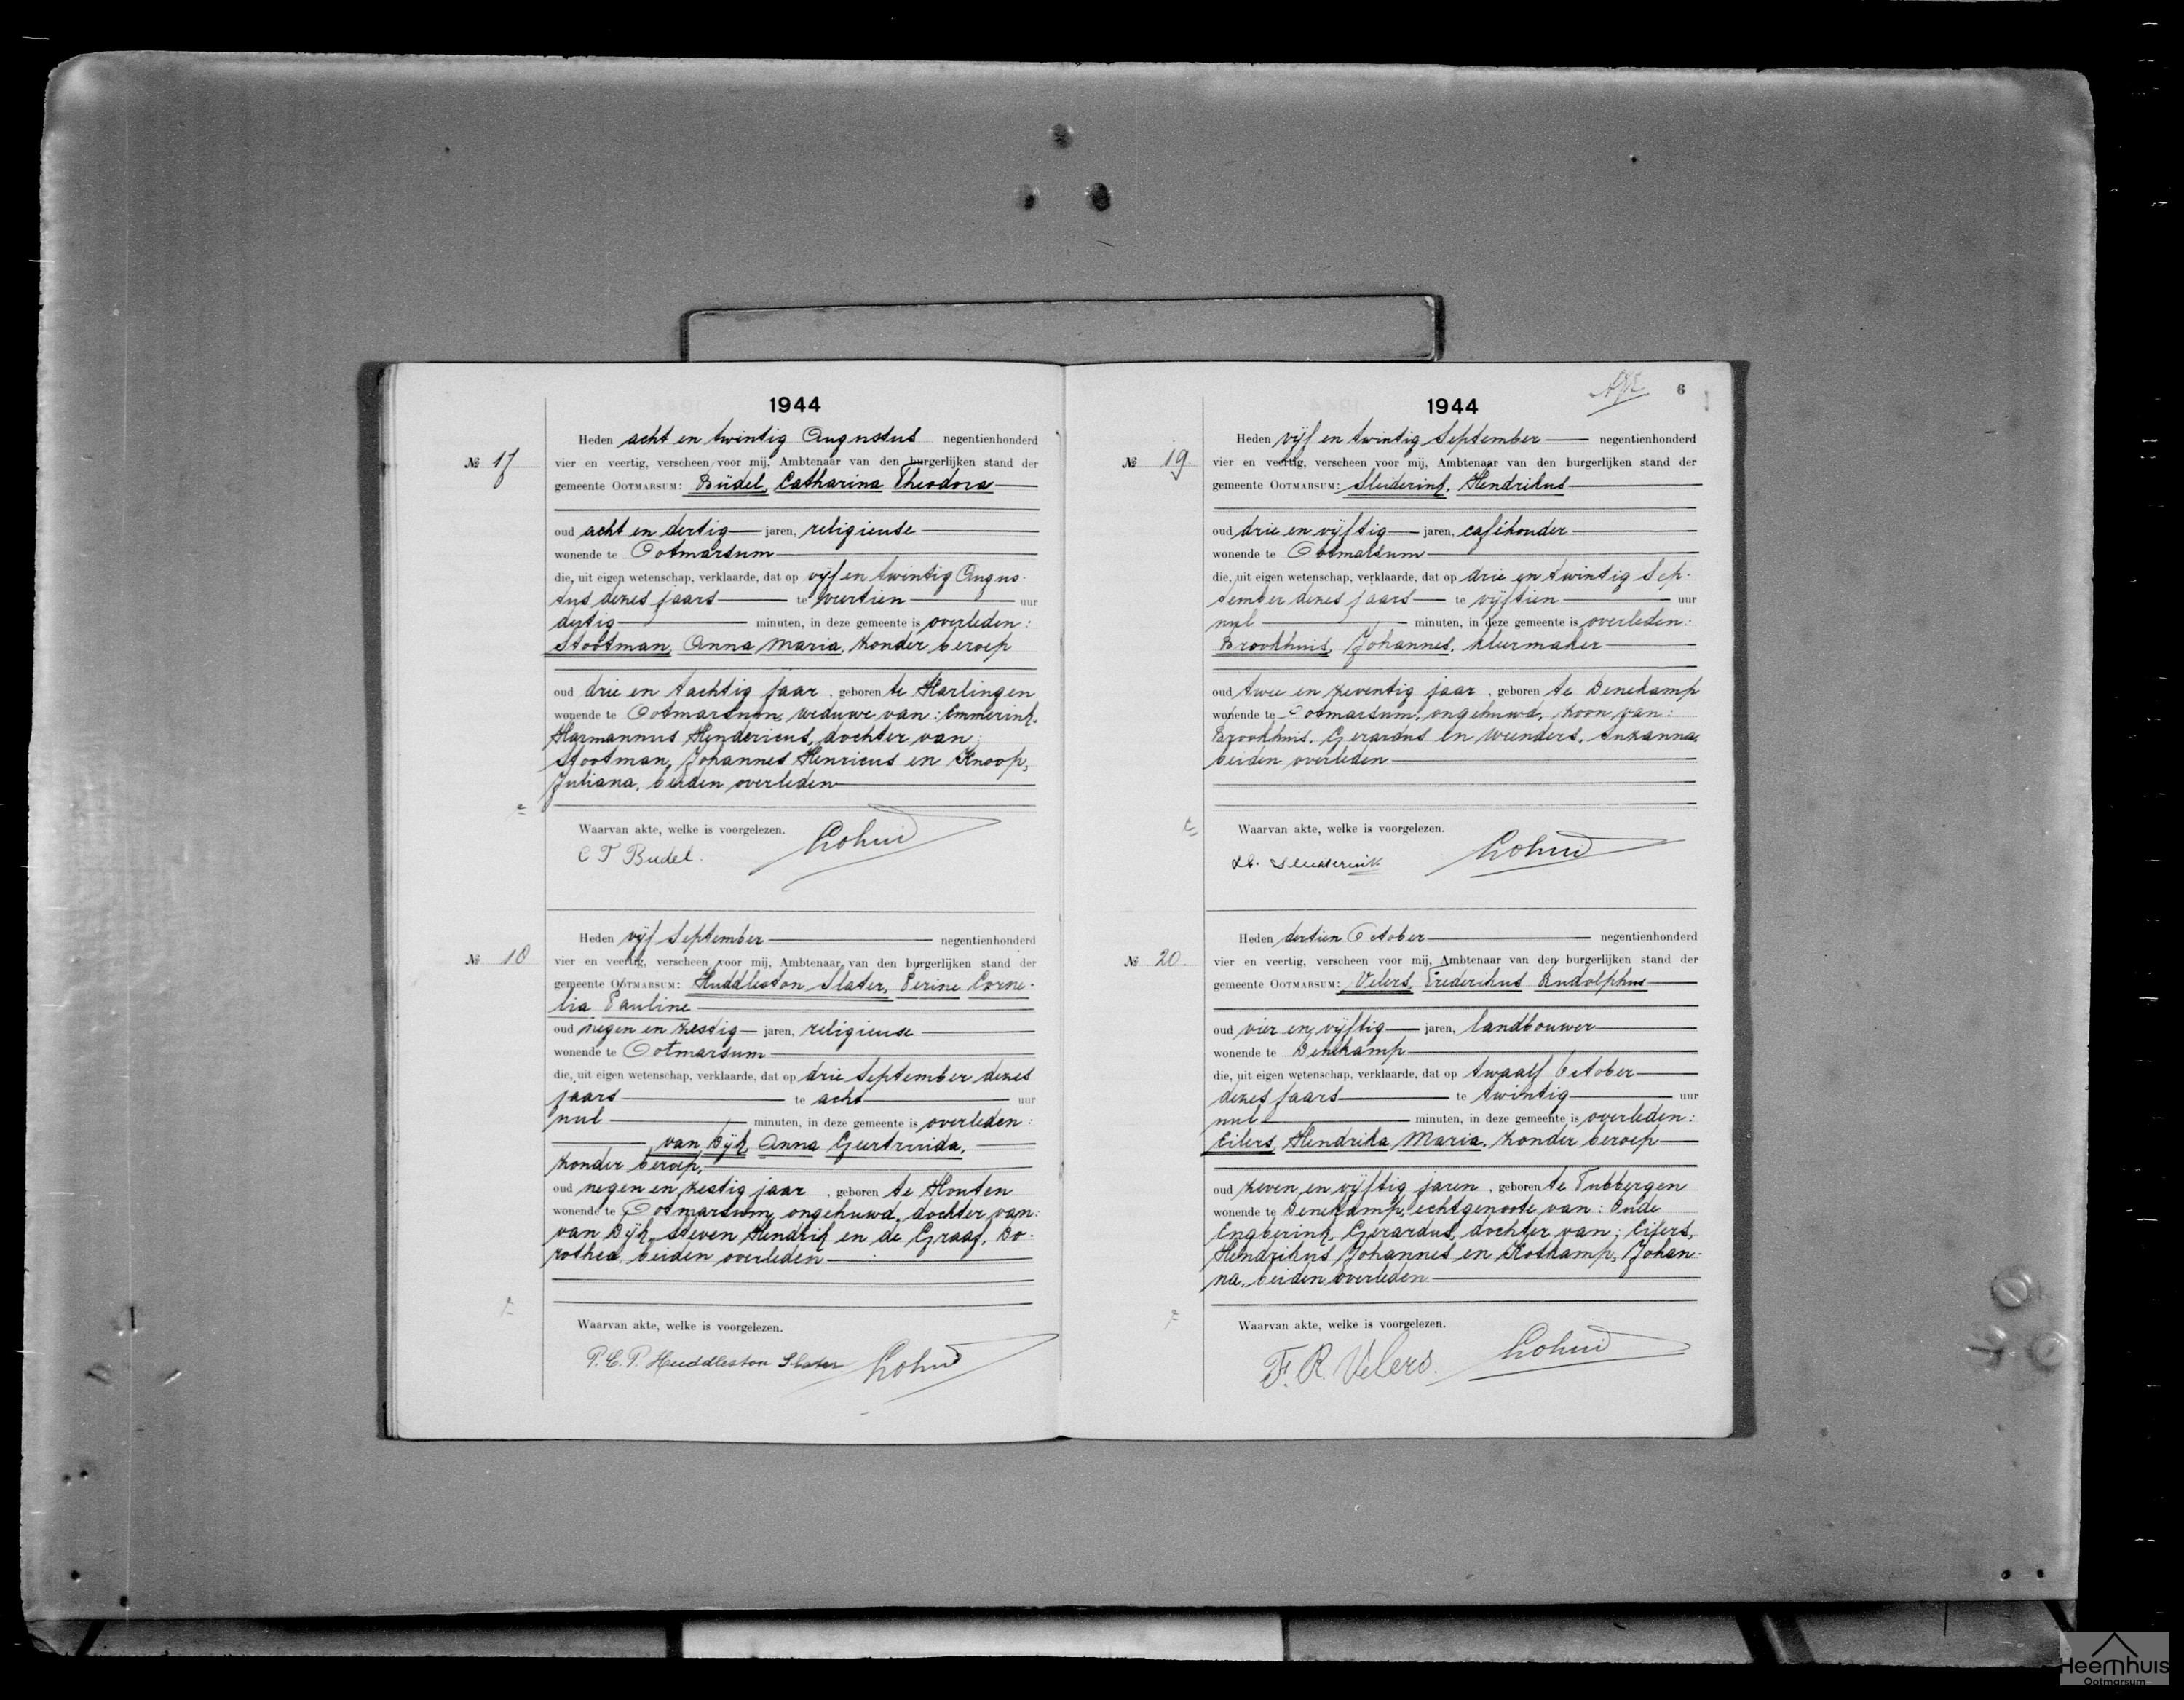 1944
Heden acht en twintig Augustus negentienhonderd
№ 17 vier en veertig, verscheen voor mij, Ambtenaar van den burgerlijken stand der
gemeente OOTMARSUM: Büdel, Catharina Theodora
oud acht en dertig jaren, religieuse
wonende te Ootmarsum
die, uit eigen wetenschap, verklaarde, dat op vijf en twintig Augus-
tus dezes jaars te veertien uur
dertig minuten, in deze gemeente is overleden:
Stootman, Anna Maria, zonder beroep
oud drie en tachtig jaar, geboren te Harlingen
wonende te Ootmarsum, weduwe van: Emmerink,
Harmannus Hendericus, dochter van:
Stootman, Johannes Henricus en Knoop,
Juliana, beiden overleden
Waarvan akte, welke is voorgelezen.
C T Budel.
Heden vijf September negentienhonderd
№ 18 vier en veertig, verscheen voor mij, Ambtenaar van den burgerlijken stand der
gemeente OOTMARSUM: Huddleston Slater, Perine Corne-
lia Pauline
oud negen en zestig jaren, religieuse
wonende te Ootmarsum
die, uit eigen wetenschap, verklaarde, dat op drie September dezes
jaars te acht uur
nul minuten, in deze gemeente is overleden:
van Dijk, Anna Geertruida,
zonder beroep,
oud negen en zestig jaar, geboren te Houten
wonende te Ootmarsum, ongehuwd, dochter van:
van Dijk, Steven Hendrik en de Graaf, Do-
rothea, beiden overleden
Waarvan akte, welke is voorgelezen.
P. C. P. Huddleston Slater
6
1944
Heden vijf en twintig September negentienhonderd
№ 19 vier en veertig, verscheen voor mij, Ambtenaar van den burgerlijken stand der
gemeente OOTMARSUM: Sleiderink, Hendrikus
oud drie en vijftig jaren, caféhouder
wonende te Ootmarsum
die, uit eigen wetenschap, verklaarde, dat op drie en twintig Sep-
tember dezes jaars te vijftien uur
nul minuten, in deze gemeente is overleden:
Brookhuis, Johannes, kleermaker
oud twee en zeventig jaar, geboren te Denekamp
wonende te Ootmarsum, ongehuwd, zoon van:
Brookhuis, Gerardus en Weenders, Suzanna,
beiden overleden
Waarvan akte, welke is voorgelezen.
Heden dertien October negentienhonderd
№ 20. vier en veertig, verscheen voor mij, Ambtenaar van den burgerlijken stand der
gemeente OOTMARSUM: Velers, Frederikus Rudolphus
oud vier en vijftig jaren, landbouwer
wonende te Denekamp
die, uit eigen wetenschap, verklaarde, dat op twaalf October
dezes jaars te twintig uur
nul minuten, in deze gemeente is overleden:
Eilers, Hendrika Maria, zonder beroep
oud zeven en vijftig jaren, geboren te Tubbergen
wonende te Denekamp, echtgenoote van: Oude
Engberink, Gerardus, dochter van: Eilers,
Hendrikus Johannes en Koskamp, Johan-
na, beiden overleden
Waarvan akte, welke is voorgelezen.
F. R. Velers.
Heemhuis
Ootmarsum